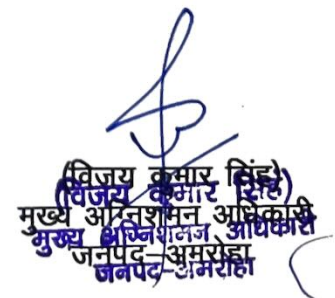 (विजय कुमार सिंह)
(विजय कुमार सिंह)
मुख्य अग्निशमन अधिकारी
मुख्य अग्निशमन अधिकारी
जनपद-अमरोहा
जनपद-अमरोहा